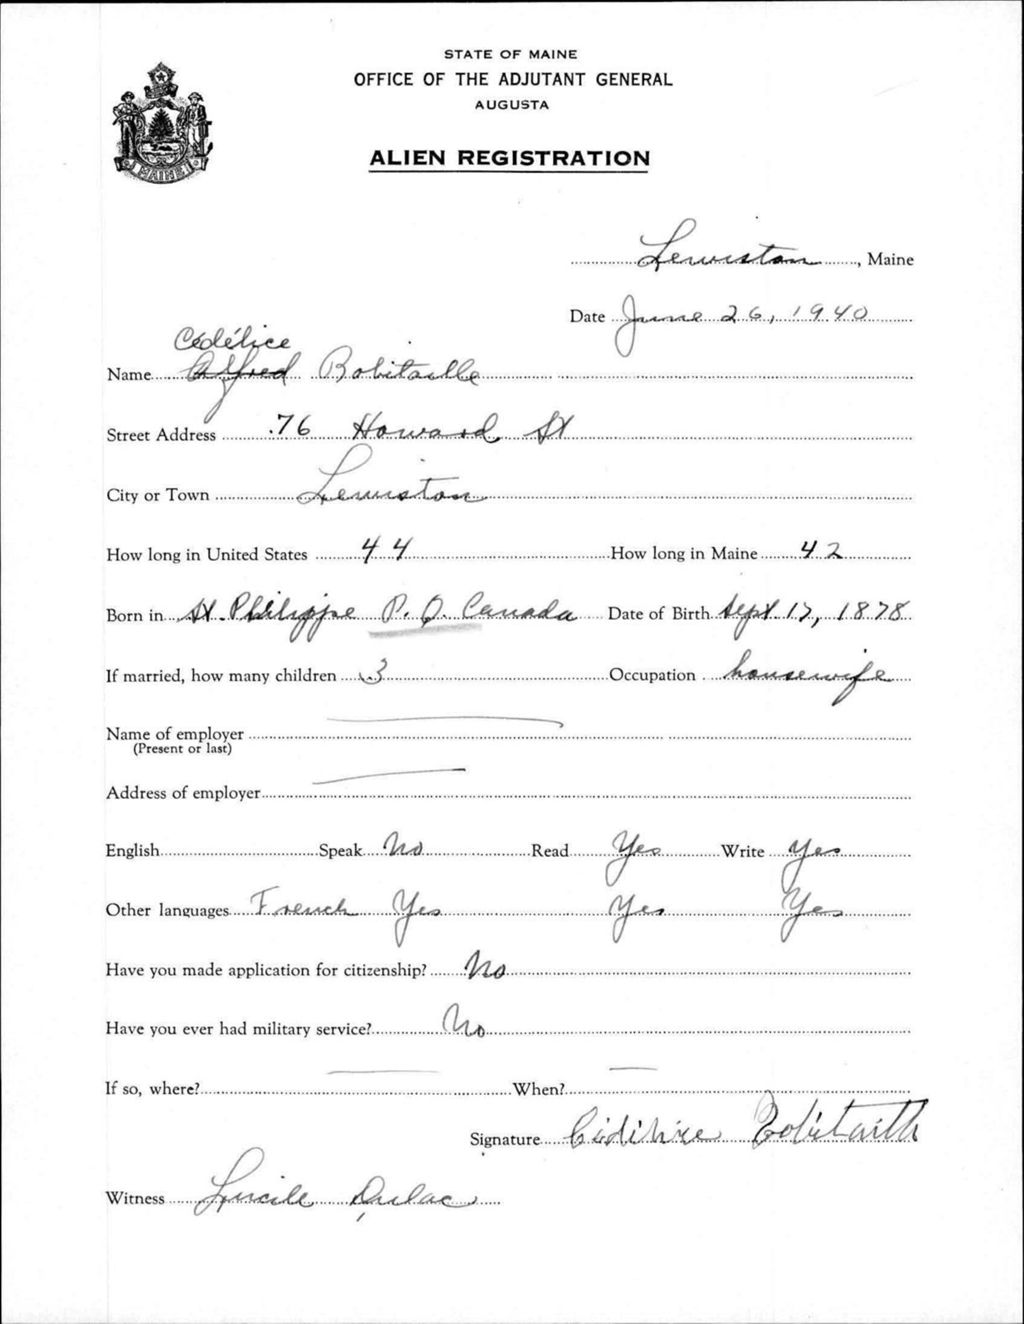 STATE OF MAINE
OFFICE OF THE ADJUTANT GENERAL
AUGUSTA
MAINE
ALIEN REGISTRATION
Lewiston, Maine
Date June 26, 1940
Cédélice
Name Alfred Robitaille
Street Address 76 Howard St
City or Town Lewiston
How long in United States 44 How long in Maine 42
Born in St. Philippe P. Q. Canada Date of Birth Sept 17, 1878
If married, how many children 3 Occupation housewife
Name of employer
(Present or last)
Address of employer
English Speak No Read Yes Write Yes
Other languages French Yes Yes Yes
Have you made application for citizenship? No
Have you ever had military service? No
If so, where? When?
Signature
Witness Lucile Dulac